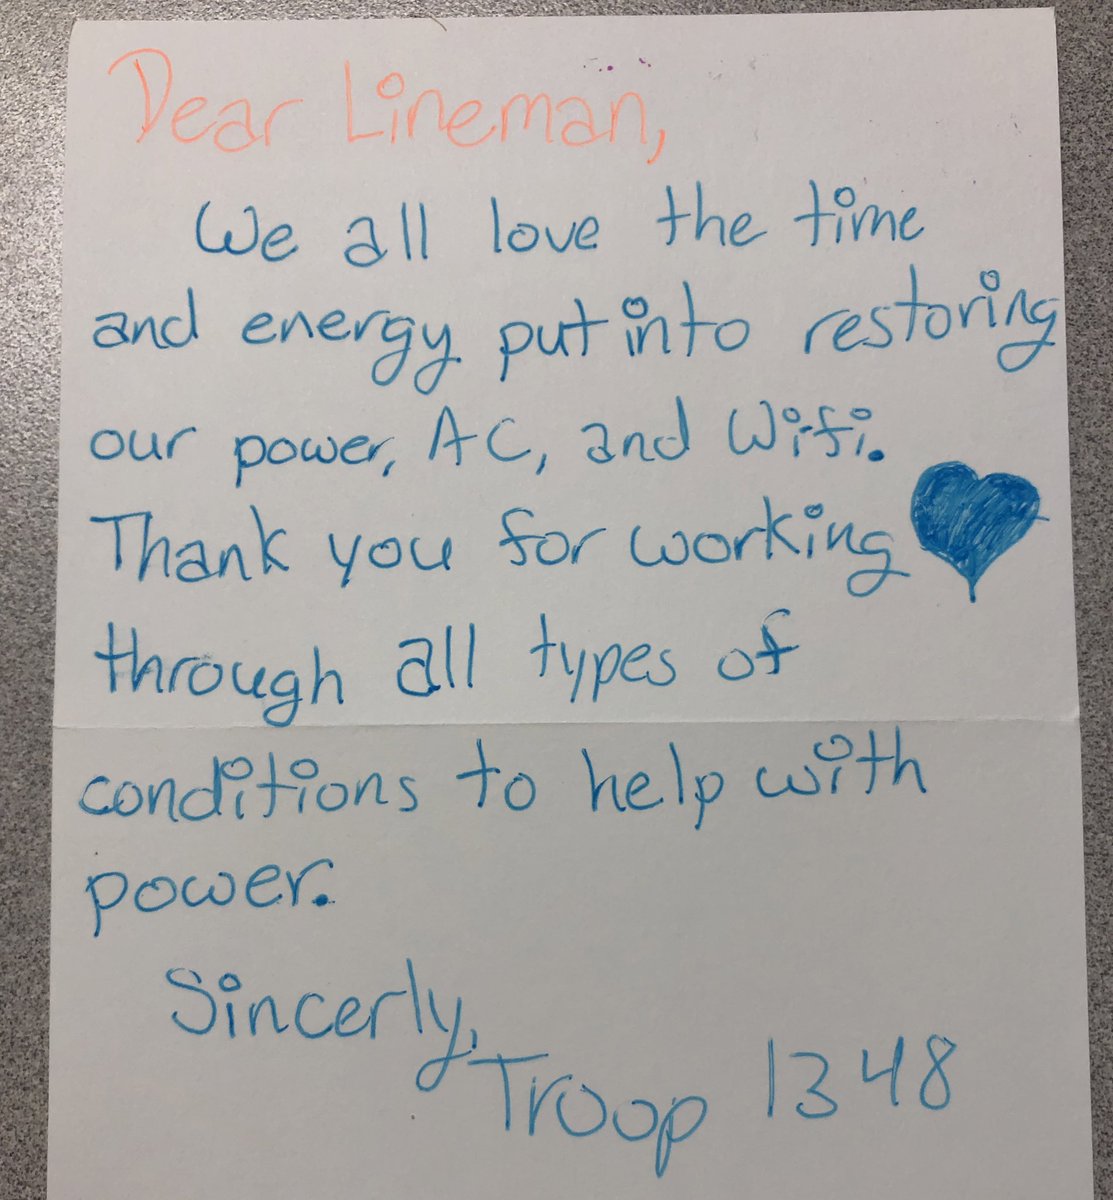 Dear Lineman,
We all love the time
and energy put into restoring
our power, AC, and Wifi.
Thank you for working
through all types of
conditions to help with
power.
Sincerly,
Troop 1348